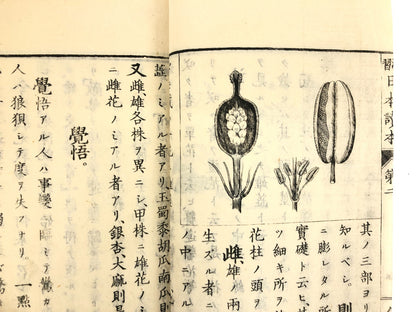 日本讀本 第二
其ノ三部ヨリ
知ルベシ、則
ニ膨レタル所
實礎ト云ヒ、其
ツ細キ所ヲ
花柱ノ頭ヲ
雌雄ノ兩
生ズル者ニ
中ニア
ノミアル者アリ、玉蜀黍胡瓜南瓜則
又雌雄各株ヲ異ニシ、甲株ニ雄花ノミ
ニ雌花ノミアル者アリ、銀杏、大麻則是
覺悟。
覺悟アル人ハ事變ニ臨ミテ驚カ
人ハ狼狽シテ度ヲ失フナリ、一點